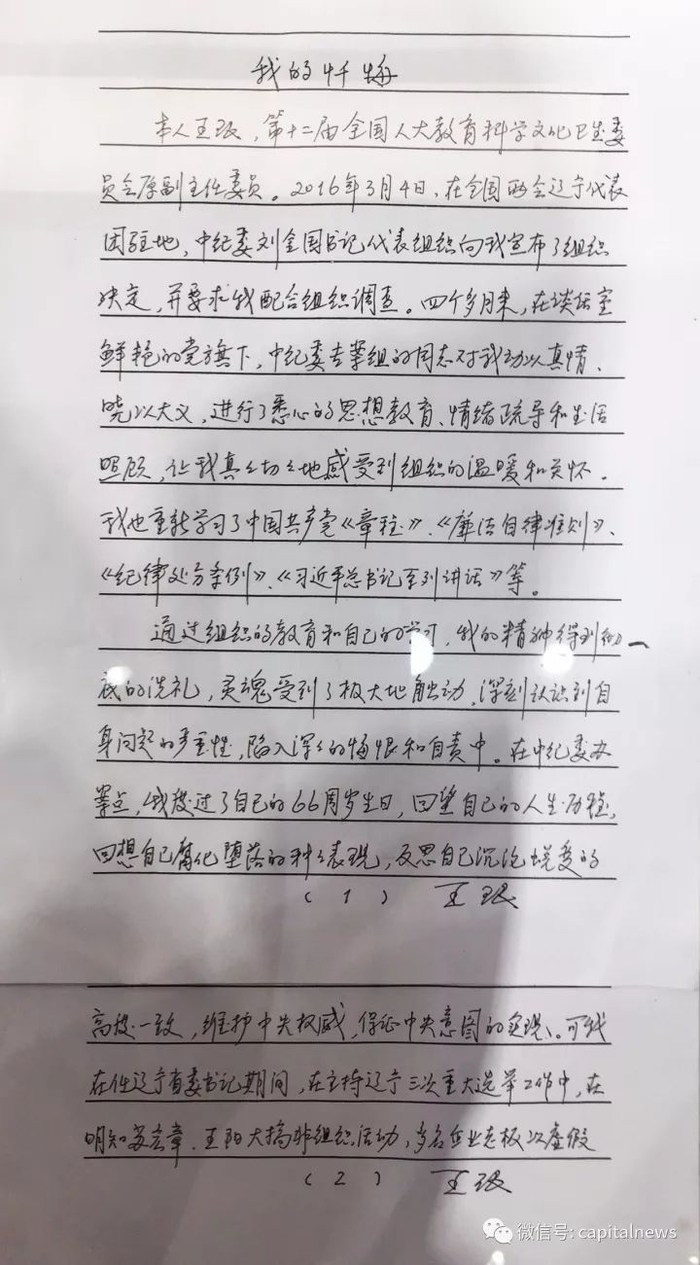 我的忏悔
本人王珉，第十二届全国人大教育科学文化卫生委
员会原副主任委员。2016年3月4日，在全国两会辽宁代表
团驻地，中纪委刘金国书记代表组织向我宣布了组织
决定，并要求我配合组织调查。四个多月来，在谈话室
鲜艳的党旗下，中纪委专案组的同志对我动以真情、
晓以大义，进行了悉心的思想教育、情绪疏导和生活
照顾，让我真々切々地感受到组织的温暖和关怀。
我也重新学习了中国共产党《章程》、《廉洁自律准则》、
《纪律处分条例》、《习近平总书记系列讲话》等。
通过组织的教育和自己的学习，我的精神得到彻
底的洗礼，灵魂受到了极大地触动，深刻认识到自
身问题的严重性，陷入深々的悔恨和自责中。在中纪委办
案点，我度过了自己的66周岁生日，回望自己的人生历程，
回想自己腐化堕落的种々表现，反思自己沉沦蜕变的
(1) 王珉
高度一致，维护中央权威，保证中央意图的实现、。可我
在任辽宁省委书记期间，在主持辽宁三次重大选举工作中，在
明知苏宏章、王阳大搞非组织活动，多名企业老板以虚假
(2) 王珉
微信号: capitalnews